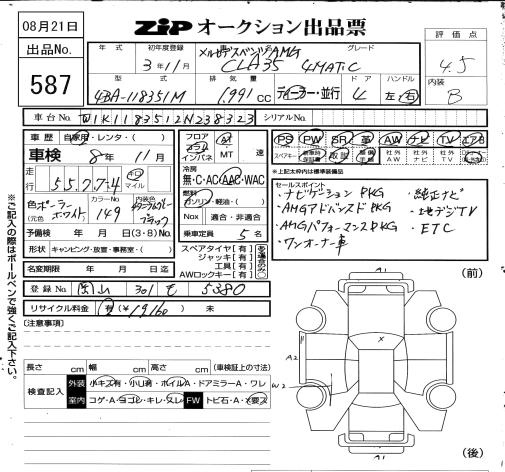 08月21日
ZiP オークション出品票
出品No.
587
年式 初年度登録 車名 グレード
3年11月 メルセデスベンツAMG CLA35 4MATIC
型式 排気量 ドア ハンドル
4BA-118351M 1,991 cc ディーラー・並行 4 左・右
評価点
4.5
内装
B
車台No. W1K1183512N238323
シリアルNo.
車歴 自家用・レンタ・( )
車検 8年 11月
走行 55,774 キロ マイル
色 ポーラーホワイト
(元色)
カラーNo. 149
内装色 ブラック
予備検 年 月 日(3・8)No.
形状 キャンピング・放置・事務室・( )
名変期限 年 月 日迄
登録No. 岡山 301 も 5380
リサイクル料金 有(¥19160) 未
フロア コラム インパネ AT MT 速
冷房
無・C・AC・AAC・WAC
燃料
ガソリン・軽油・( )
Nox 適合・非適合
乗車定員 5 名
スペアタイヤ [有]
ジャッキ [有]
工具 [有]
AWロックキー [有]
ある場合のみ○
PS PW SR 革 AW ナビ TV エアB
スペアキー 新車時保証書 取説 整備手帳 社外AW 社外ナビ 社外TV
※上記太枠内は標準装備品
セールスポイント
・ナビゲーションPKG ・純正ナビ
・AMGアドバンスドPKG ・地デジTV
・AMGパフォーマンスPKG ・ETC
・ワンオーナー車
[注意事項]
長さ cm 幅 cm 高さ cm (車検証上の寸法)
検査記入 外装 小キズ有・小凹有・ホイルA・ドアミラーA・ワレ
室内 コゲ・A・ヨゴレ・キレ・スレ FW トビ石・A・X要ス
(前)
A1
A2
W2
X
A1
(後)
※ご記入の際はボールペンで強くご記入下さい。